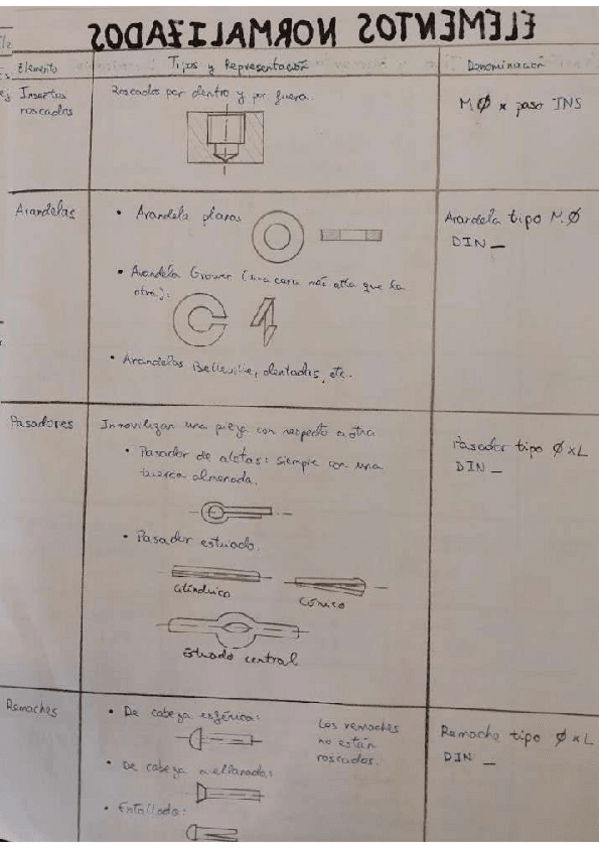 ELEMENTOS NORMALIZADOS
Elemento
Tipos y Representación
Denominación
Insertos
roscados
Roscados por dentro y por fuera.
M Ø x paso INS
Arandelas
• Arandela plana
Arandela tipo M.Ø
DIN _
• Arandela Grower (una cara más alta que la
otra):
• Arandelas Belleville, dentadas, etc.
Pasadores
Inmovilizar una pieza con respecto a otra
Pasador tipo Ø x L
DIN _
• Pasador de aletas: siempre con una
tuerca almenada.
• Pasador estriado.
cilíndrico
Cónico
Estriado central
Remaches
• De cabeza esférica:
Los remaches
no están
roscados.
Remache tipo Ø x L
DIN _
• De cabeza avellanada:
• Entallado: